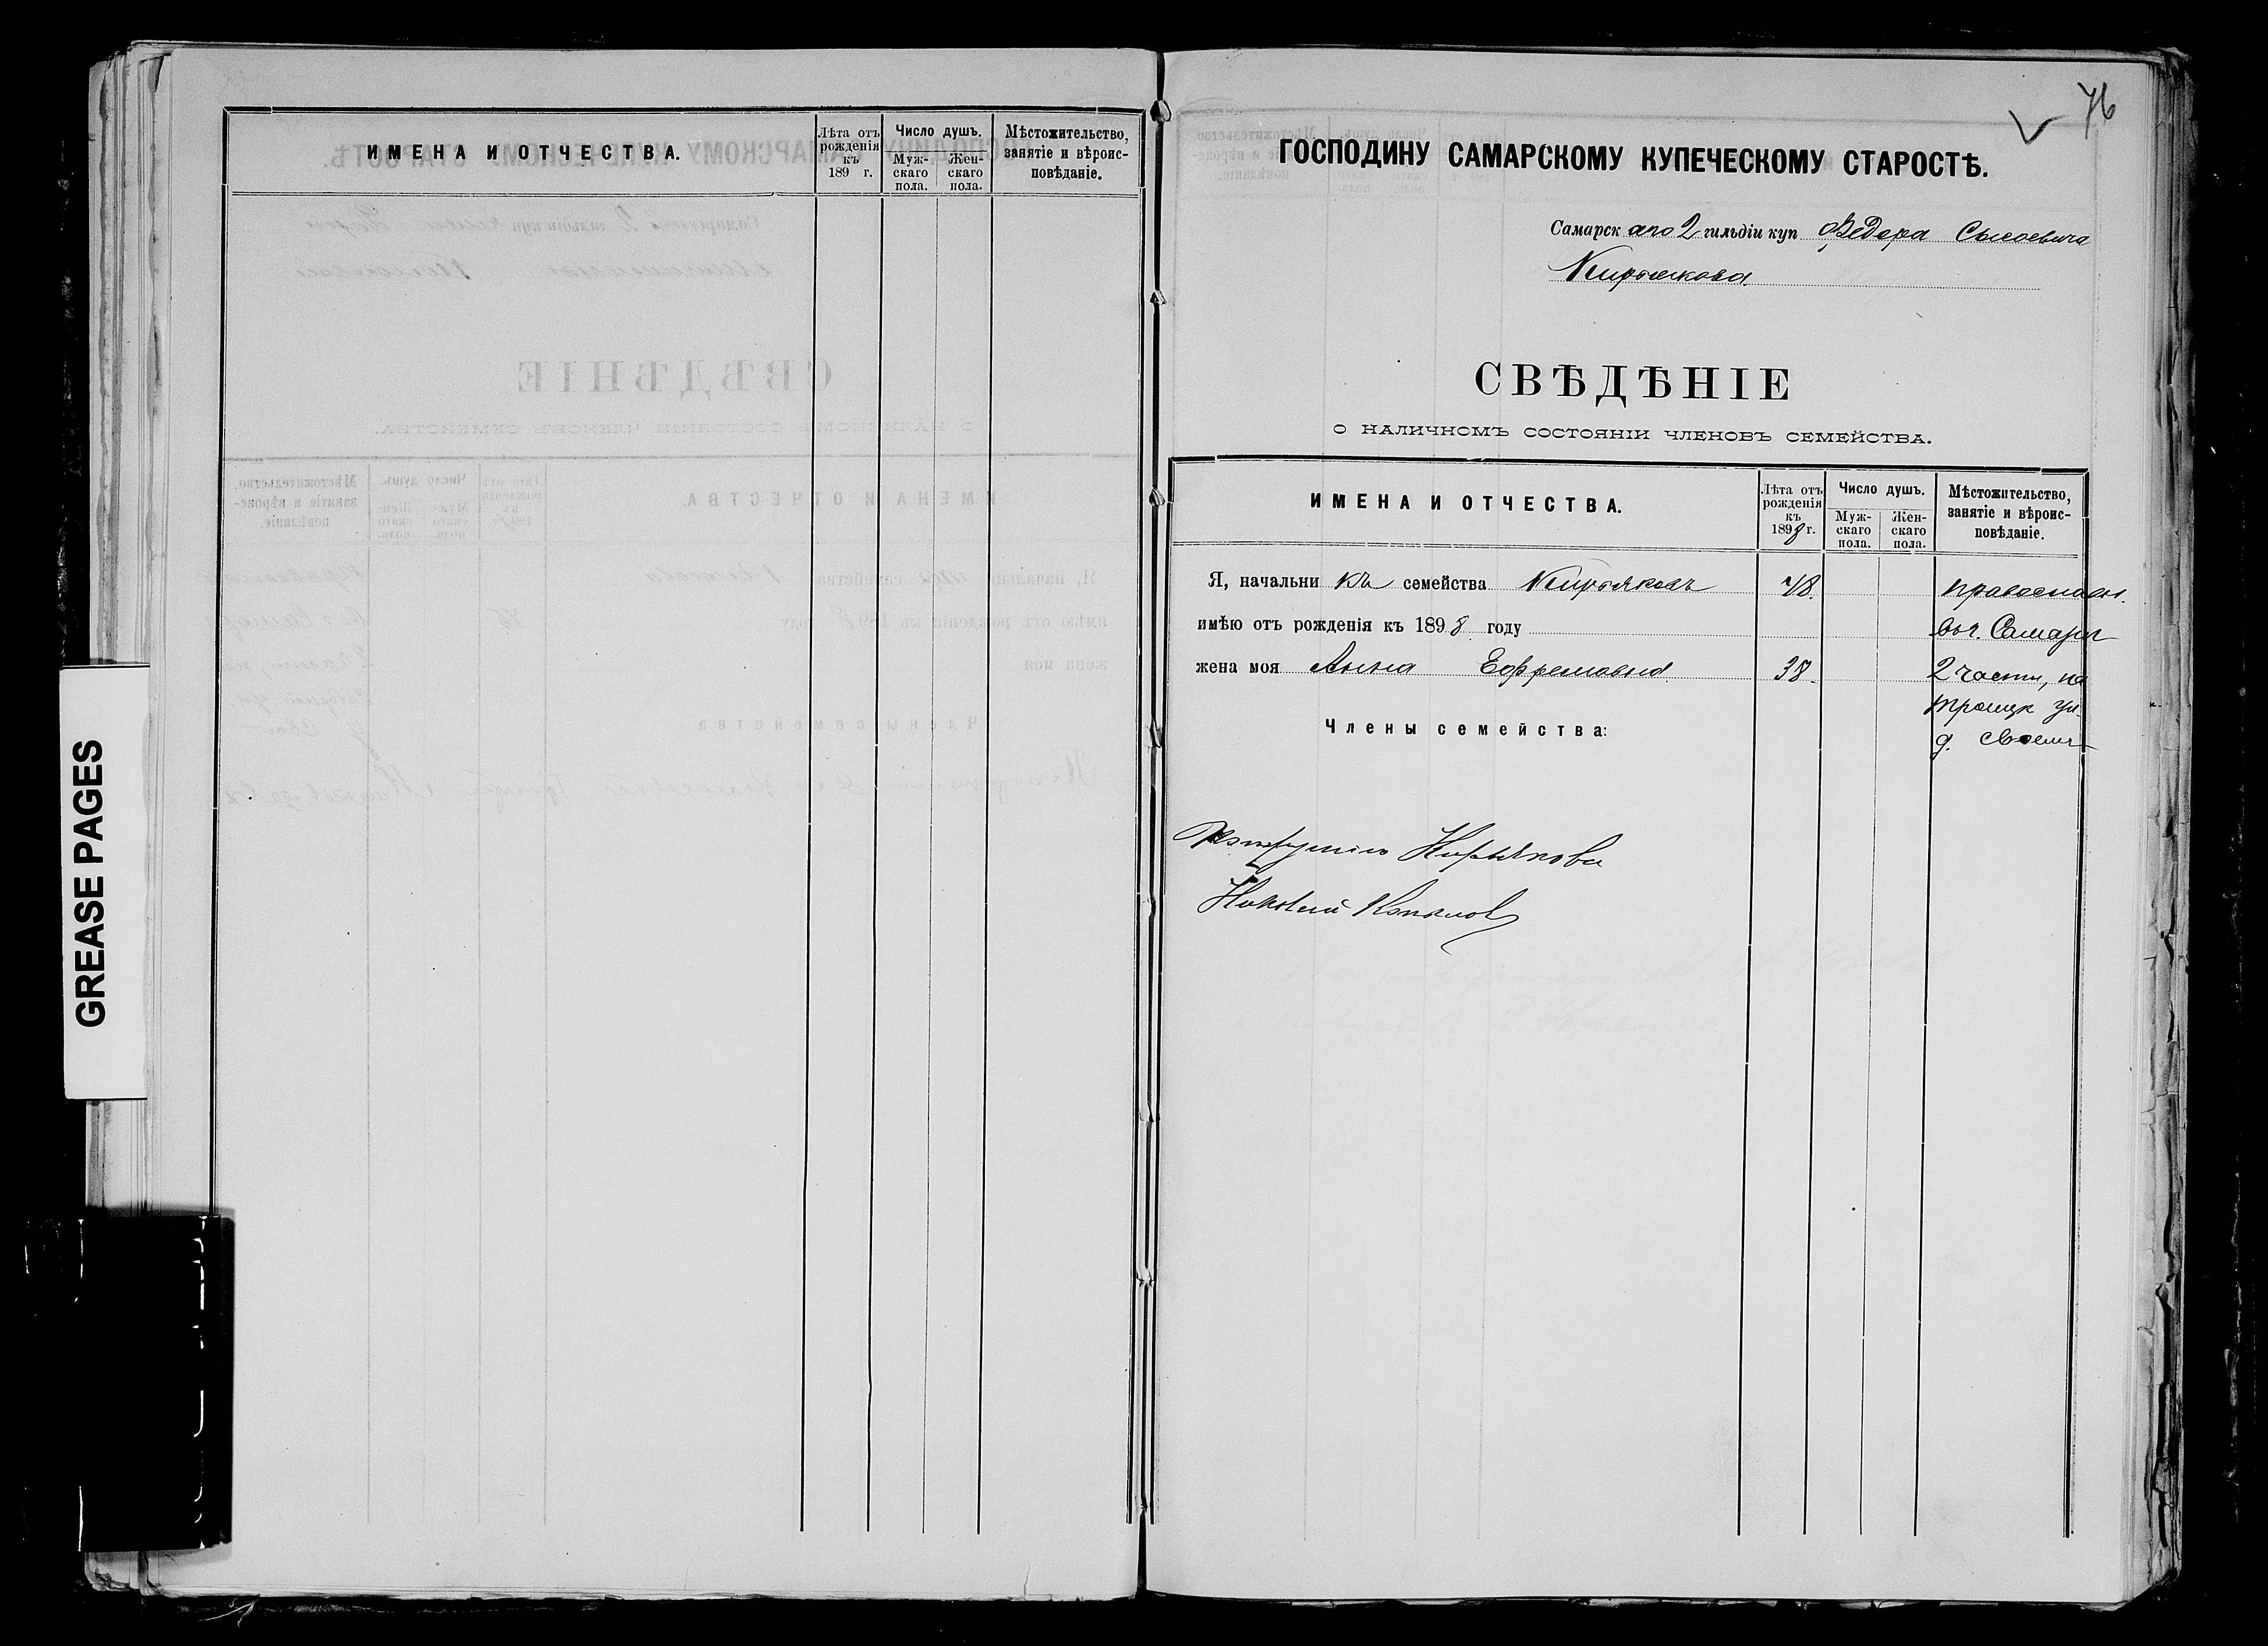 ИМЕНА И ОТЧЕСТВА.
Лѣта отъ рожденія къ 189 г.
Число душъ.
Мужскаго пола.
Женскаго пола.
Мѣстожительство, занятіе и вѣроисповѣданіе.
GREASE PAGES
76
ГОСПОДИНУ САМАРСКОМУ КУПЕЧЕСКОМУ СТАРОСТѢ.
Самарскаго 2 гильдіи куп Федора Сысоевича
Кирьякова
СВѢДѢНІЕ
О НАЛИЧНОМЪ СОСТОЯНІИ ЧЛЕНОВЪ СЕМЕЙСТВА.
ИМЕНА И ОТЧЕСТВА.
Лѣта отъ рожденія къ 1898 г.
Число душъ.
Мужскаго пола.
Женскаго пола.
Мѣстожительство, занятіе и вѣроисповѣданіе.
Я, начальникъ семейства Кирьяковъ 48 православн.
имѣю отъ рожденія къ 1898 году въ г. Самарѣ
жена моя Анна Ефремовна 38 2 части, на
Троицк ул.
Члены семейства:
д. своемъ
Кирьякова